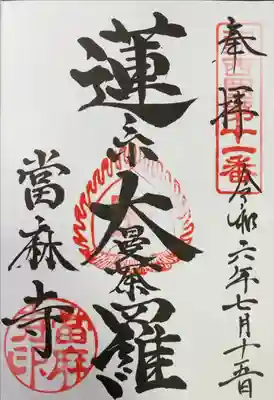 奉拝
十一番
令和六年七月十五日
蓮糸大曼荼羅
當麻寺
當麻寺印